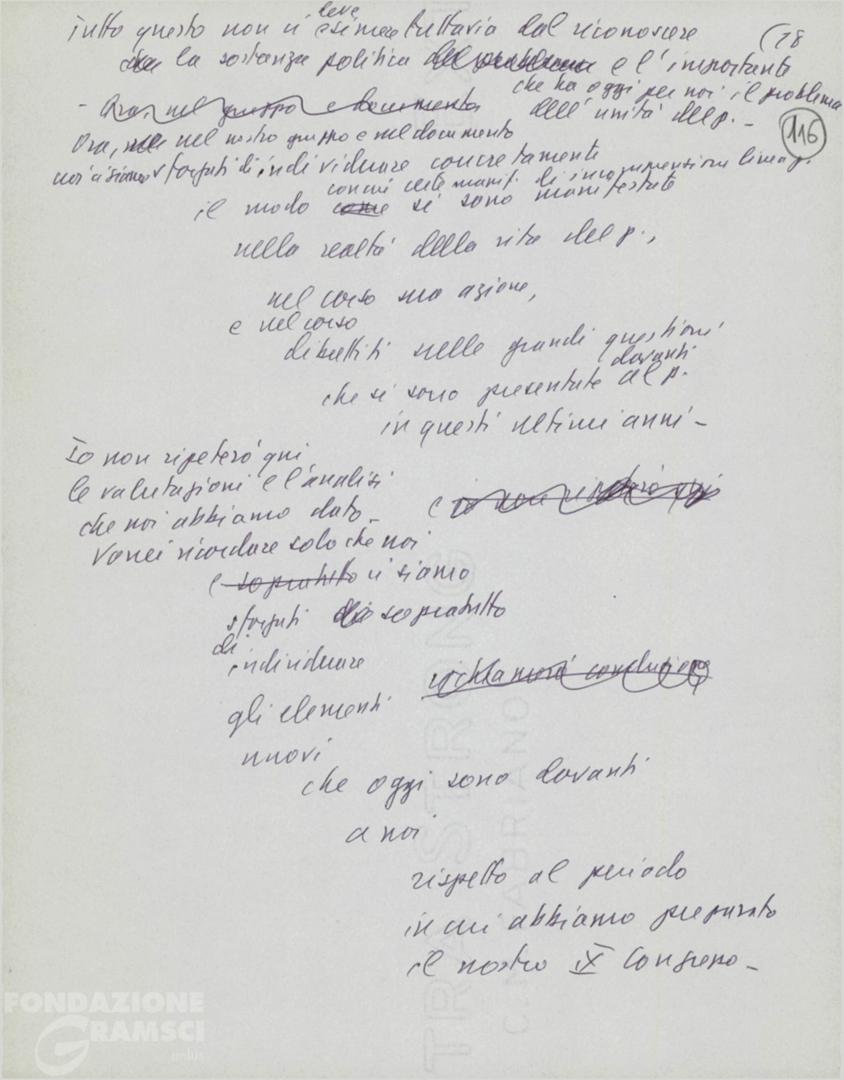 deve
Tutto questo non ci esimere tuttavia dal riconoscere
(18
la sostanza politica e l'importante
che ha oggi per noi il problema
dell'unità del p. -
116
- Ora, nel gruppo e documento
Ora, nel nostro gruppo e nel documento
noi ci siamo sforzati di individuare concretamente
con cui certe manif. di incomprensione linea p.
il modo come si sono manifestate
nella realtà della vita del p.,
nel corso sua azione,
e nel corso
dibattiti sulle grandi questioni
davanti
che si sono presentate al p.
in questi ultimi anni -
Io non ripeterò qui
le valutazioni e l'analisi
che noi abbiamo dato -
Vorrei ricordare solo che noi
(sopratutto ci siamo
sforzati di sopratutto
di
individuare
richiamerò
gli elementi
nuovi
che oggi sono davanti
a noi
rispetto al periodo
in cui abbiamo preparato
il nostro IX Congresso -
TRA STRONG
C.M. FABRIANO
FONDAZIONE
GRAMSCI
onlus